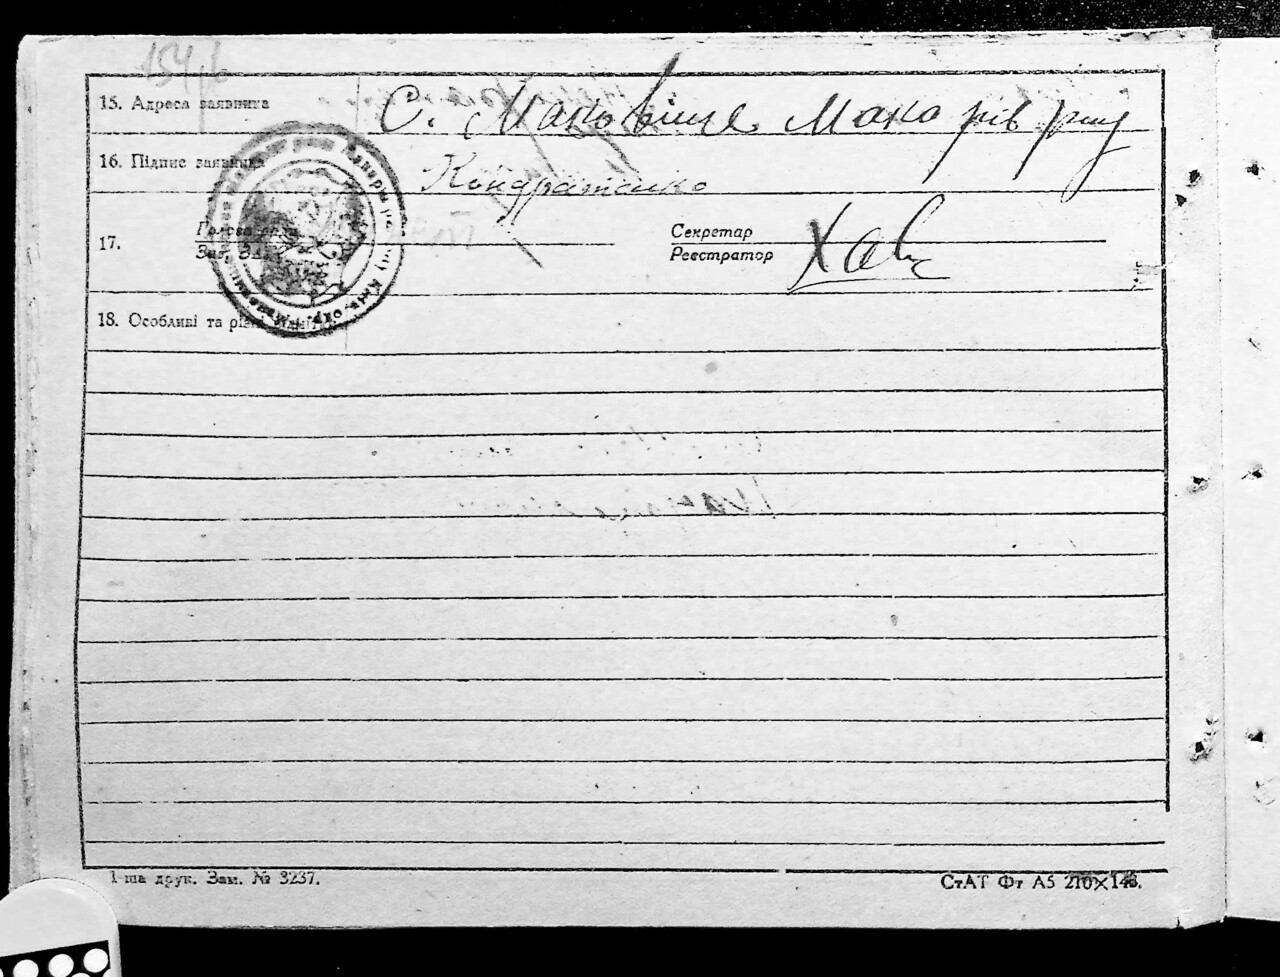 154
15. Адреса заявника С. Маковіще Макарів р-ну
16. Підпис заявника Кондратенко
17. Голова ради
Зав. ЗА
Секретар
Реєстратор
18. Особливі та різні
1-ша друк. Зам. № 3237.
СтАТ Фт А5 210×148.